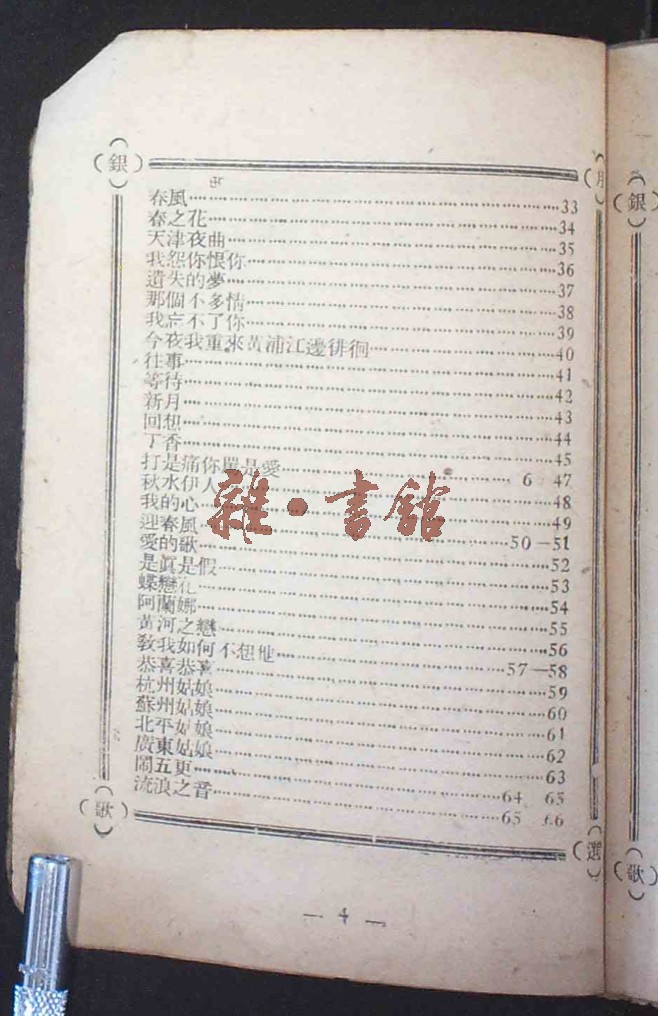 (銀)
(月
春風……33
春之花……34
天津夜曲……35
我怨你恨你……36
遺失的夢……37
那個不多情……38
我忘不了你……39
今夜我重來黃浦江邊徘徊……40
往事……41
等待……42
新月……43
回想……44
丁香……45
打是痛你罵是愛……6 47
秋水伊人……48
我的心……49
迎春風……50—51
愛的歌……52
是眞是假……53
蝶戀花……54
阿蘭娜……55
黃河之戀……56
敎我如何不想他……57—58
恭喜恭喜……59
杭州姑娘……60
蘇州姑娘……61
北平姑娘……62
廣東姑娘……63
鬧五更……64 65
流浪之音……65 66
(歌)
(選
— 4 —
(銀)
(歌)
雜·書館